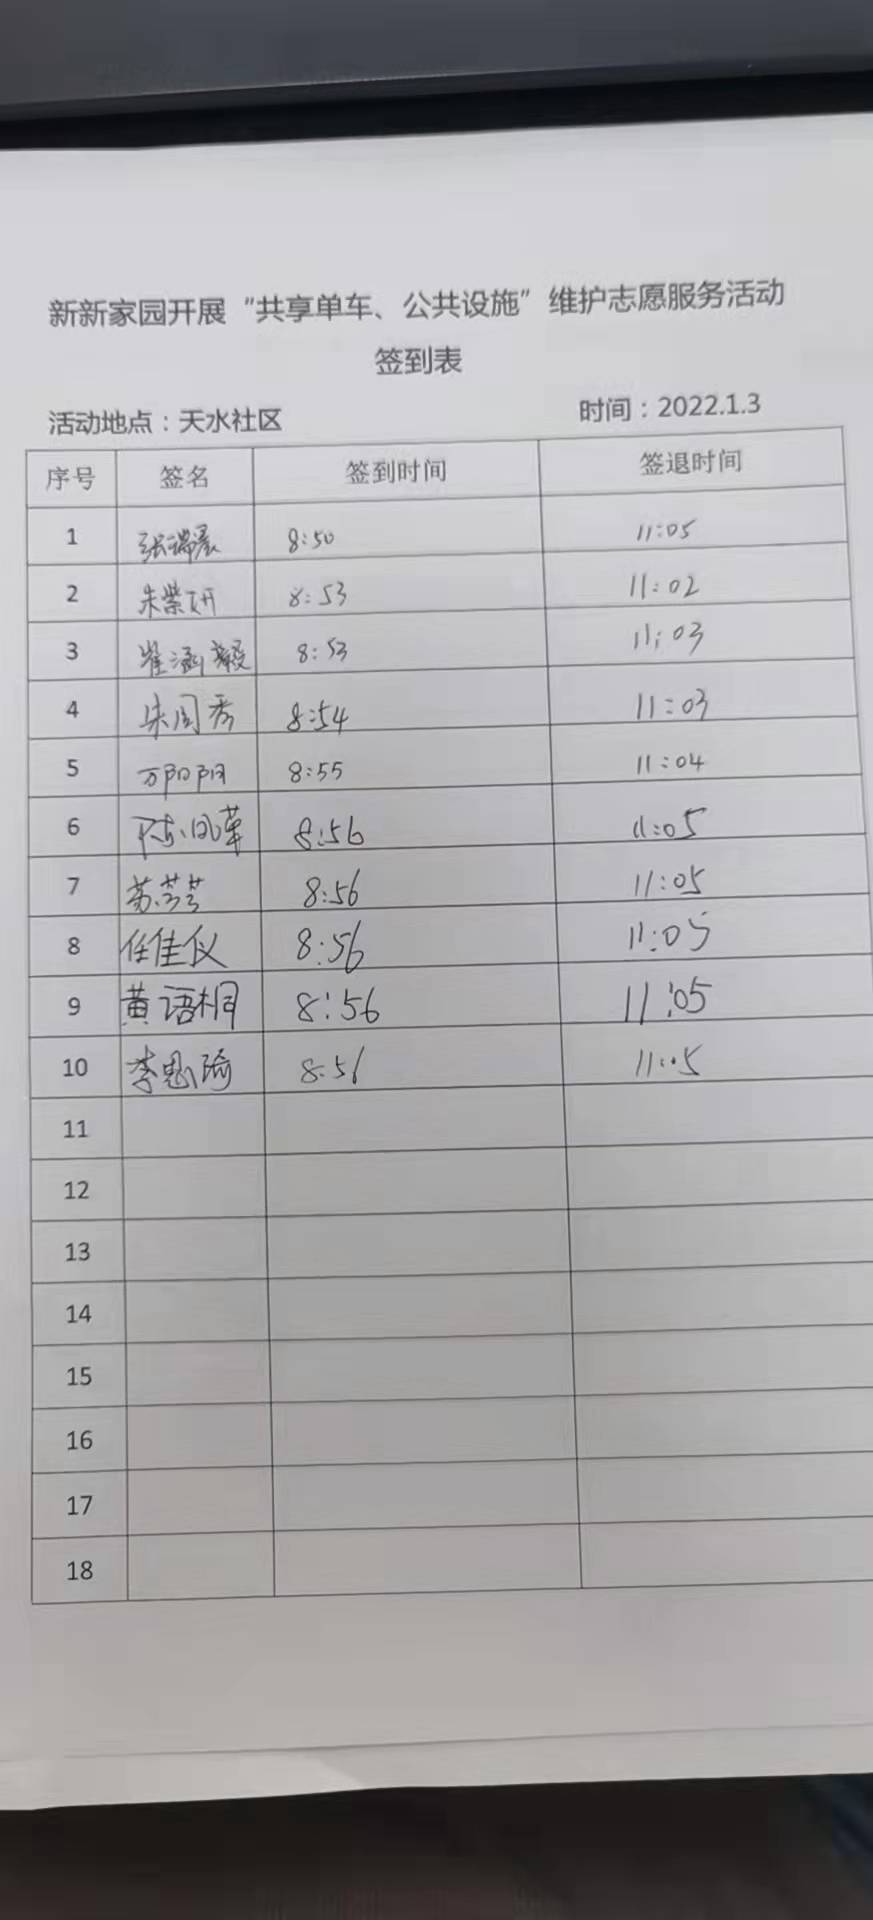 新新家园开展“共享单车、公共设施”维护志愿服务活动
签到表
活动地点：天水社区 时间：2022.1.3
序号 签名 签到时间 签退时间
1 张瑞晨 8:50 11:05
2 朱紫妍 8:53 11:02
3 崔涵毅 8:53 11:03
4 朱周秀 8:54 11:03
5 万阳阳 8:55 11:04
6 陈凤革 8:56 11:05
7 苏芸芸 8:56 11:05
8 任佳仪 8:56 11:05
9 黄语桐 8:56 11:05
10 李思琦 8:56 11:05
11
12
13
14
15
16
17
18